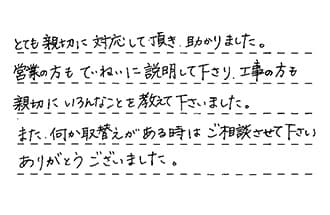 とても親切に対応して頂き、助かりました。
営業の方もていねいに説明して下さり、工事の方も
親切にいろんなことを教えて下さいました。
また、何か取替えがある時はご相談させて下さい
ありがとうございました。